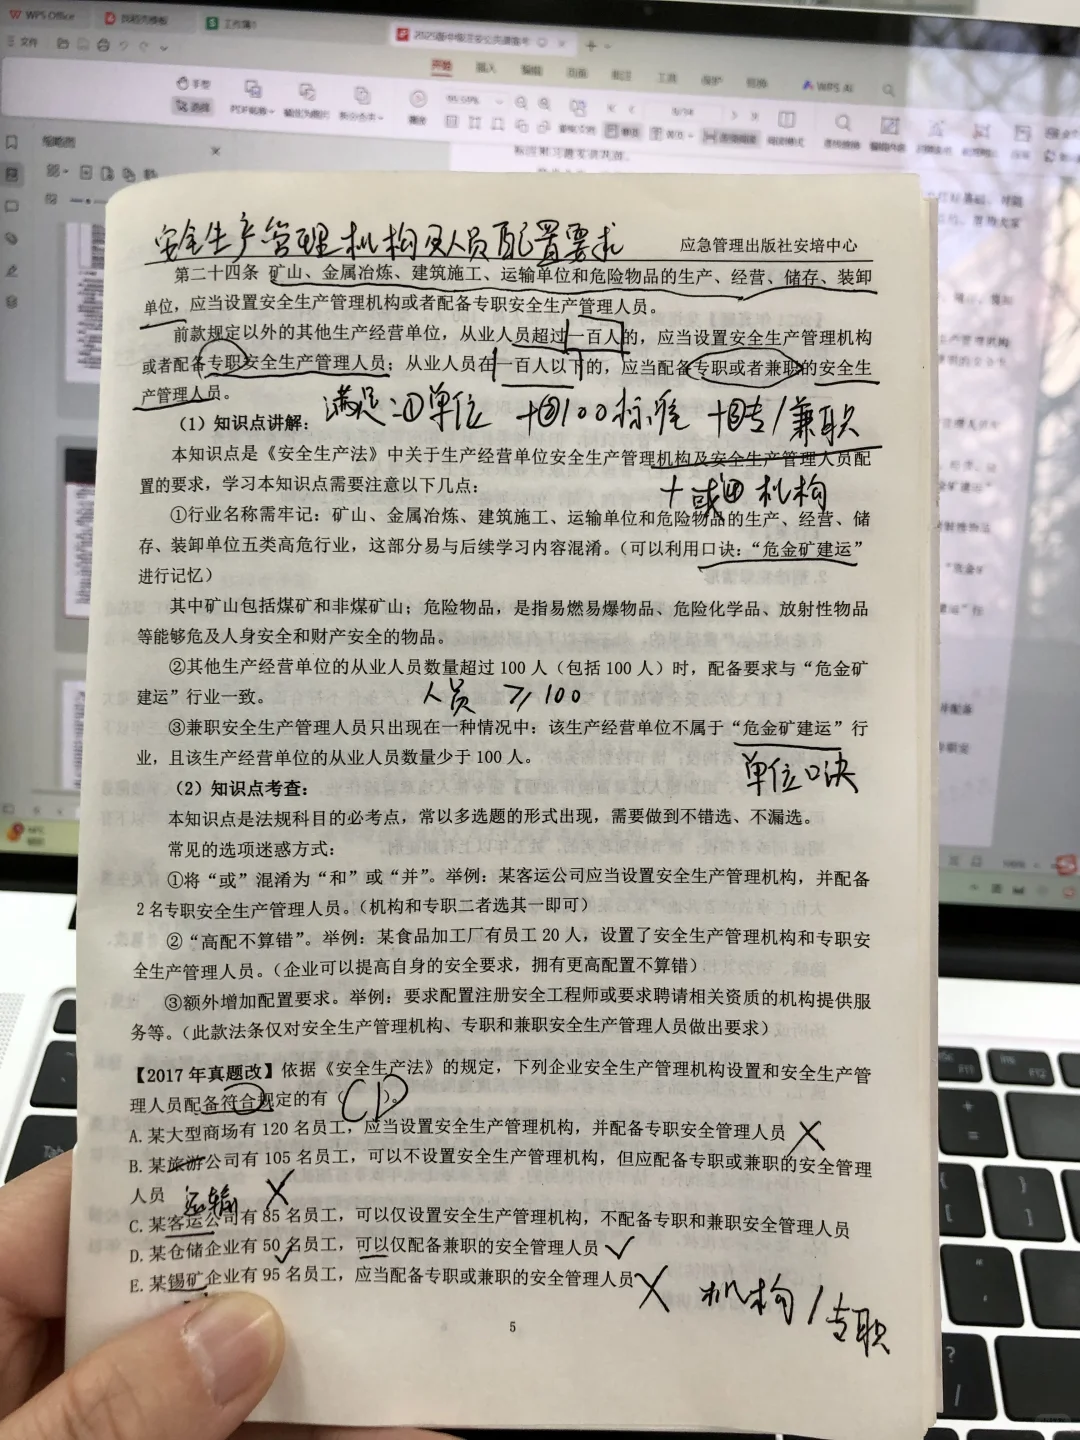 WPS Office
工作簿1
文件
开始
插入
编辑
页面
批注
工具
保护
WPS AI
手型
选择
安全生产管理机构及人员配置要求
应急管理出版社安培中心
第二十四条 矿山、金属冶炼、建筑施工、运输单位和危险物品的生产、经营、储存、装卸
单位，应当设置安全生产管理机构或者配备专职安全生产管理人员。
前款规定以外的其他生产经营单位，从业人员超过一百人的，应当设置安全生产管理机构
或者配备专职安全生产管理人员；从业人员在一百人以下的，应当配备专职或者兼职的安全生
产管理人员。
满足：①单位 +②100标准 +③专/兼职
（1）知识点讲解：
本知识点是《安全生产法》中关于生产经营单位安全生产管理机构及安全生产管理人员配
置的要求，学习本知识点需要注意以下几点：
+或④机构
①行业名称需牢记：矿山、金属冶炼、建筑施工、运输单位和危险物品的生产、经营、储
存、装卸单位五类高危行业，这部分易与后续学习内容混淆。（可以利用口诀：“危金矿建运”
进行记忆）
其中矿山包括煤矿和非煤矿山；危险物品，是指易燃易爆物品、危险化学品、放射性物品
等能够危及人身安全和财产安全的物品。
②其他生产经营单位的从业人员数量超过 100 人（包括 100 人）时，配备要求与“危金矿
建运”行业一致。
人员 ≥100
③兼职安全生产管理人员只出现在一种情况中：该生产经营单位不属于“危金矿建运”行
业，且该生产经营单位的从业人员数量少于 100 人。
单位口诀
（2）知识点考查：
本知识点是法规科目的必考点，常以多选题的形式出现，需要做到不错选、不漏选。
常见的选项迷惑方式：
①将“或”混淆为“和”或“并”。举例：某客运公司应当设置安全生产管理机构，并配备
2 名专职安全生产管理人员。（机构和专职二者选其一即可）
②“高配不算错”。举例：某食品加工厂有员工 20 人，设置了安全生产管理机构和专职安
全生产管理人员。（企业可以提高自身的安全要求，拥有更高配置不算错）
③额外增加配置要求。举例：要求配置注册安全工程师或要求聘请相关资质的机构提供服
务等。（此款法条仅对安全生产管理机构、专职和兼职安全生产管理人员做出要求）
【2017 年真题改】依据《安全生产法》的规定，下列企业安全生产管理机构设置和安全生产管
理人员配备符合规定的有（CD）。
A. 某大型商场有 120 名员工，应当设置安全生产管理机构，并配备专职安全管理人员
B. 某旅游公司有 105 名员工，可以不设置安全生产管理机构，但应配备专职或兼职的安全管理
人员
运输
C. 某客运公司有 85 名员工，可以仅设置安全生产管理机构，不配备专职和兼职安全管理人员
D. 某仓储企业有 50 名员工，可以仅配备兼职的安全管理人员
E. 某锡矿企业有 95 名员工，应当配备专职或兼职的安全管理人员
机构/专职
5